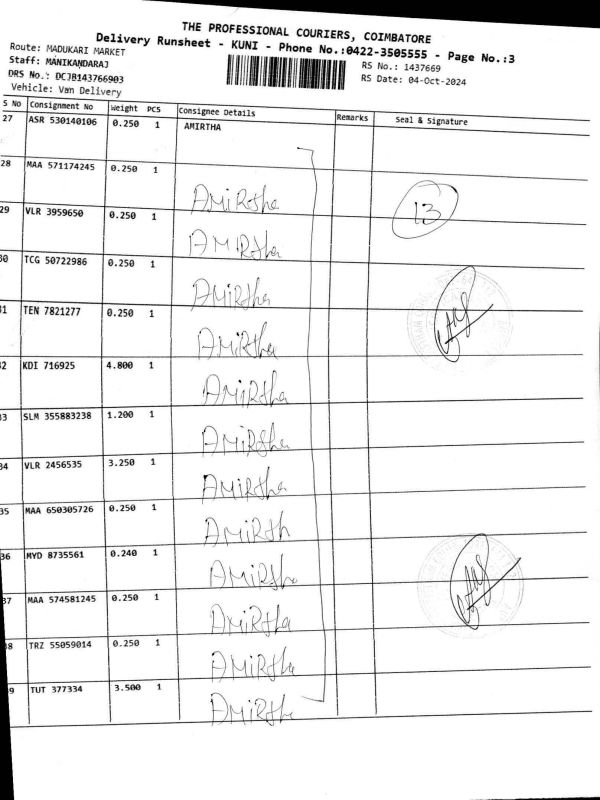 THE PROFESSIONAL COURIERS, COIMBATORE
Delivery Runsheet - KUNI - Phone No.:0422-3505555 - Page No.:3
Route: MADUKARI MARKET
Staff: MANIKANDARAJ
DRS No.: DCJB143766903
Vehicle: Van Delivery
RS No.: 1437669
RS Date: 04-Oct-2024
S No Consignment No Weight PCS Consignee Details Remarks Seal & Signature
27 ASR 530140106 0.250 1 AMIRTHA
28 MAA 571174245 0.250 1 AMiRtha
13
29 VLR 3959650 0.250 1 AMIRtha
30 TCG 50722986 0.250 1 AMiRtha
31 TEN 7821277 0.250 1 AMiRtha
32 KDI 716925 4.800 1 AMiRtha
33 SLM 355883238 1.200 1 AMiRtha
34 VLR 2456535 3.250 1 AMiRtha
35 MAA 650305726 0.250 1 AMiRth
36 MYD 8735561 0.240 1 AMiRtha
37 MAA 574581245 0.250 1 AMiRtha
38 TRZ 55059014 0.250 1 AMiRtha
39 TUT 377334 3.500 1 AMiRtha